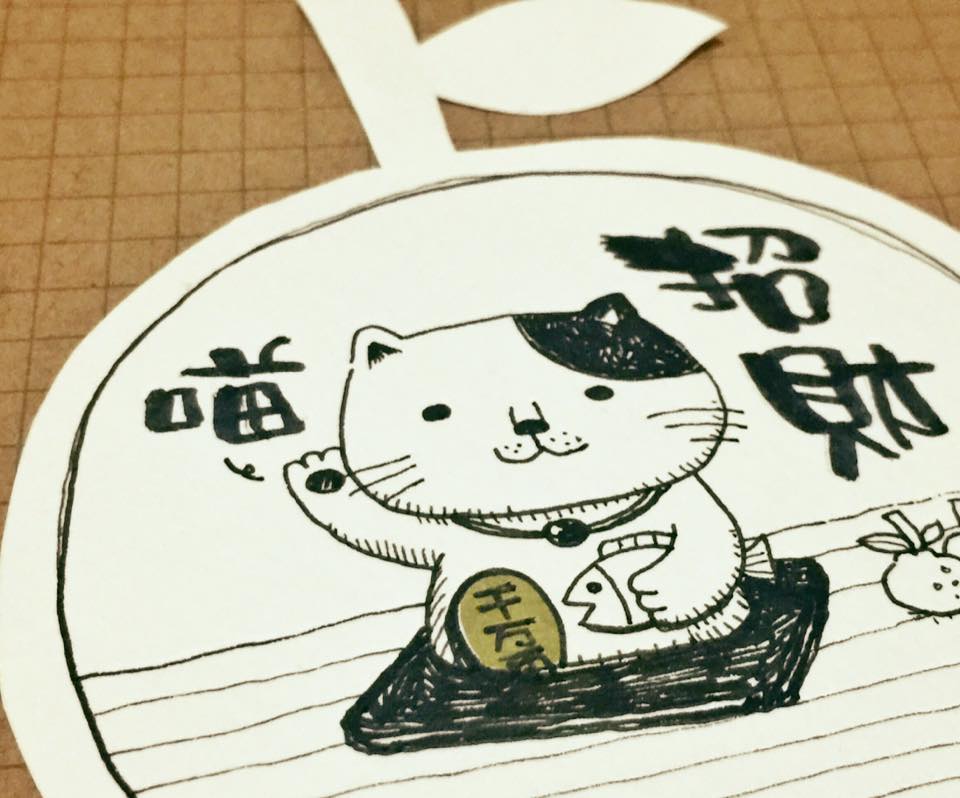 招財
喵
千万